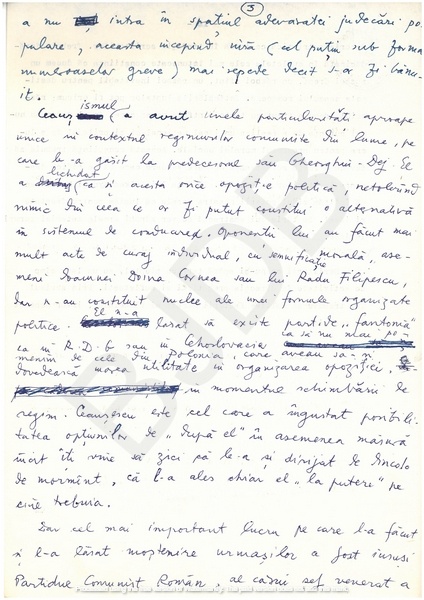 3
a nu intra în spațiul adevăratei judecări po-
pulare, aceasta începînd însă (cel puțin sub forma
numeroaselor greve) mai repede decît s-ar fi bănu-
it.
Ceaușismul a avut unele particularități aproape
unice în contextul regimurilor comuniste din lume, pe
care le-a găsit la predecesorul său Gheorghiu-Dej. El
a lichidat (ca și acesta orice opoziție politică, netolerînd
nimic din ceea ce ar fi putut constitui o alternativă
în sistemul de conducere. Oponenții lui au făcut mai
mult acte de curaj individual, cu semnificație morală, ase-
meni doamnei Doina Cornea sau lui Radu Filipescu,
dar n-au constituit nuclee ale unei formule organizate
politice. El n-a lăsat să existe partide "fantomă"
ca în R.D.G sau în Cehoslovacia ca să nu mai po-
menim de cele din Polonia, care aveau să-și
dovedească marea utilitate în organizarea opoziției,
în momentul schimbării de
regim. Ceaușescu este cel care a îngustat posibili-
tatea opțiunilor de "după el" în asemenea măsură
încît îți vine să zici că le-a și dirijat de dincolo
de mormînt, că l-a ales chiar el "la putere" pe
cine trebuia.
Dar cel mai important lucru pe care l-a făcut
și l-a lăsat moștenire urmașilor a fost însuși
Partidul Comunist Român, al cărui șef venerat a
BJDB